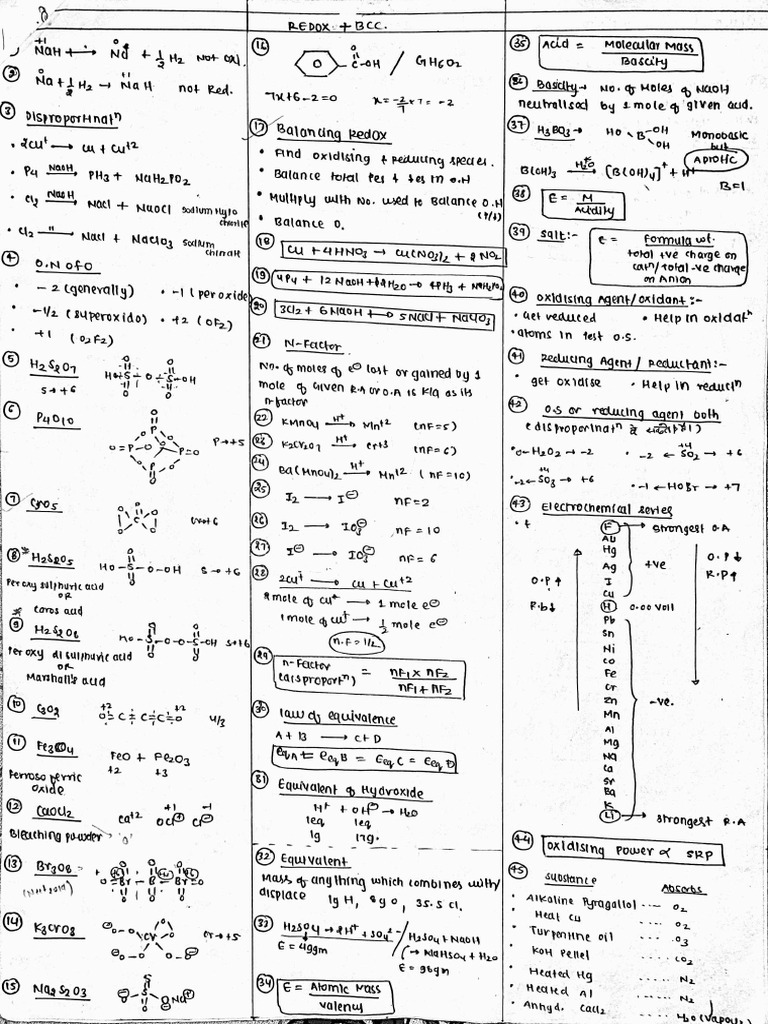 REDOX + BCC.
+1 0
NaH → Na + 1/2 H2 Not Oxi.
② 0 +1
Na + 1/2 H2 → NaH not Red.
③ Disproportinatⁿ
• 2Cu+ → Cu + Cu+2
• P4 NaOH→ PH3 + NaH2PO2
• Cl2 NaOH→ NaCl + NaOCl sodium Hypo
• Cl2 —"→ NaCl + NaClO3 sodium
④ O.N of O
• -2 (generally) • -1 (peroxide)
• -1/2 (superoxide) • +2 (OF2)
• +1 (O2F2)
⑤ H2S2O7
S → +6
HO-S-O-S-OH
⑥ P4O10
P → +5
⑦ CrO5
Cr → +6
⑧ H2SO5
HO-S-O-OH S → +6
Peroxy sulphuric acid
OR
caros acid
⑨ H2S2O8
HO-S-O-O-S-OH S+6
Peroxy disulphuric acid
OR
Marshall's acid
⑩ C3O2 O=C=C=C=O 4/3
+2 +2
⑪ Fe3O4 FeO + Fe2O3
+2 +3
Ferroso ferric
oxide
⑫ CaOCl2 Ca+2 OCl⊖ Cl⊖
+1 -1
Bleaching powder
⑬ Br3O8
O=Br-Br-Br=O
⑭ K3CrO8
Cr → +5
⑮ Na2S2O3
⑯ C-OH / C7H6O2
7x+6-2=0 x = -2/7 × 7 = -2
⑰ Balancing Redox
• Find oxidising + reducing species.
• Balance total +es & -es in O.N
• Multiply with No. used to Balance O.N
• Balance O.
⑱ Cu + 4HNO3 → Cu(NO3)2 + 2NO2
⑲ 4P4 + 12NaOH + 12H2O → 4PH3 + NaH2PO2
⑳ 3Cl2 + 6NaOH → 5NaCl + NaClO3
㉑ N-Factor
No. of moles of e⊖ lost or gained by 1
mole of Given R.A or O.A is K/a as its
n-factor
㉒ KMnO4 H+→ Mn+2 (nF=5)
㉓ K2Cr2O7 H+→ Cr+3 (nF=6)
㉔ Ba(MnO4)2 H+→ Mn+2 (nF=10)
㉕ I2 → I⊖ nF=2
㉖ I2 → IO3⊖ nF=10
㉗ I⊖ → IO3⊖ nF=6
㉘ 2Cu+ → Cu + Cu+2
2 mole of Cu+ → 1 mole e⊖
1 mole of Cu+ → 1/2 mole e⊖
n.F = 1/2
㉙ n-Factor (disproportⁿ) = nF1 × nF2 / nF1 + nF2
㉚ law of equivalence
A + B → C + D
Eeq A = Eeq B = Eeq C = Eeq D
㉛ Equivalent of Hydroxide
H+ + OH⊖ → H2O
1eq 1eq
1g 17g.
㉜ Equivalent
Mass of anything which combines with/
displace 1g H, 8g O, 35.5 Cl.
㉝ H2SO4 → 2H+ + SO4 2- / H2SO4 + NaOH
→ NaHSO4 + H2O
E = 49gm E = 98gm
㉞ E = Atomic Mass / valency
㉟ Acid = Molecular Mass / Bascity
㊱ Basicity → No. of Moles of NaOH
neutralised by 1 mole of given acid.
㊲ H3BO3 → HO B OH OH Monobasic
but
Aprotic
B(OH)3 H2O→ [B(OH)4]- + H+
B=1
㊳ E = M / Acidity
㊴ Salt:- E = Formula wt. / total +ve charge on
catⁿ/total -ve charge
on Anion
㊵ Oxidising Agent/oxidant :-
• Get reduced • Help in oxidatⁿ
• atoms in test O.S.
㊶ Reducing Agent / Reductant:-
• get oxidise • Help in reductⁿ
㊷ O.S or reducing agent both
• H2O2 → -2 • -2 ← SO2 → +6
+4
• -2 ← SO3 → +6 • -1 ← HOBr → +7
㊸ Electrochemical series
F → strongest O.A
Au
Hg
Ag +ve
I
Cu
H 0.00 volt
Pb
Sn
Ni
Co
Fe
Cr
Zn -ve.
Mn
Al
Mg
Na
Ca
Sr
Ba
K
Li → strongest R.A
O.P↑
R.P↓
O.P↓
R.P↑
㊹ Oxidising Power ∝ SRP
㊺ Substance Absorbs
• Alkaline Pyragallol ---- O2
• Heat Cu ···· O2
• Turpentine oil ···· O3
• KOH Pellet ···· CO2
• Heated Hg ···· N2
• Heated Al ···· N2
• Anhyd. CaCl2 ···· H2O (vapour)